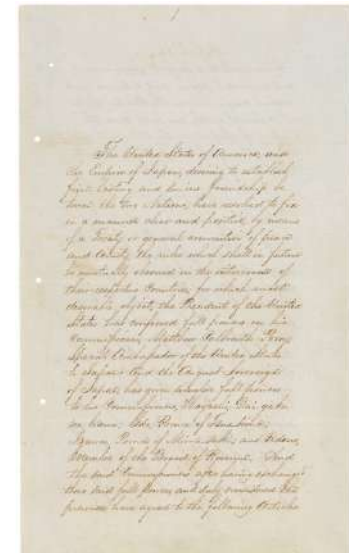 The United States of America, and
the Empire of Japan, desiring to establish
firm, lasting and sincere friendship be
tween the two Nations, have resolved to fix
in a manner clear and positive, by means
of a Treaty or general convention of peace
and amity, the rules which shall in future
be mutually observed in the intercourse of
their respective Countries; for which most
desirable object, the President of the United
States has conferred full powers on his
Commissioner, Matthew Calbraith Perry
Special Ambassador of the United States
to Japan: And the August Sovereign
of Japan, has given similar full powers
to his Commissioners, Hayashi, Dai-gaku
no-kami; Ido, Prince of Tsus-Sima;
Izawa, Prince of Mima-saki; and Udono,
Member of the Board of Revenue. And
the said Commissioners after having exchanged
their said full powers, and duly considered the
premises, have agreed to the following Articles